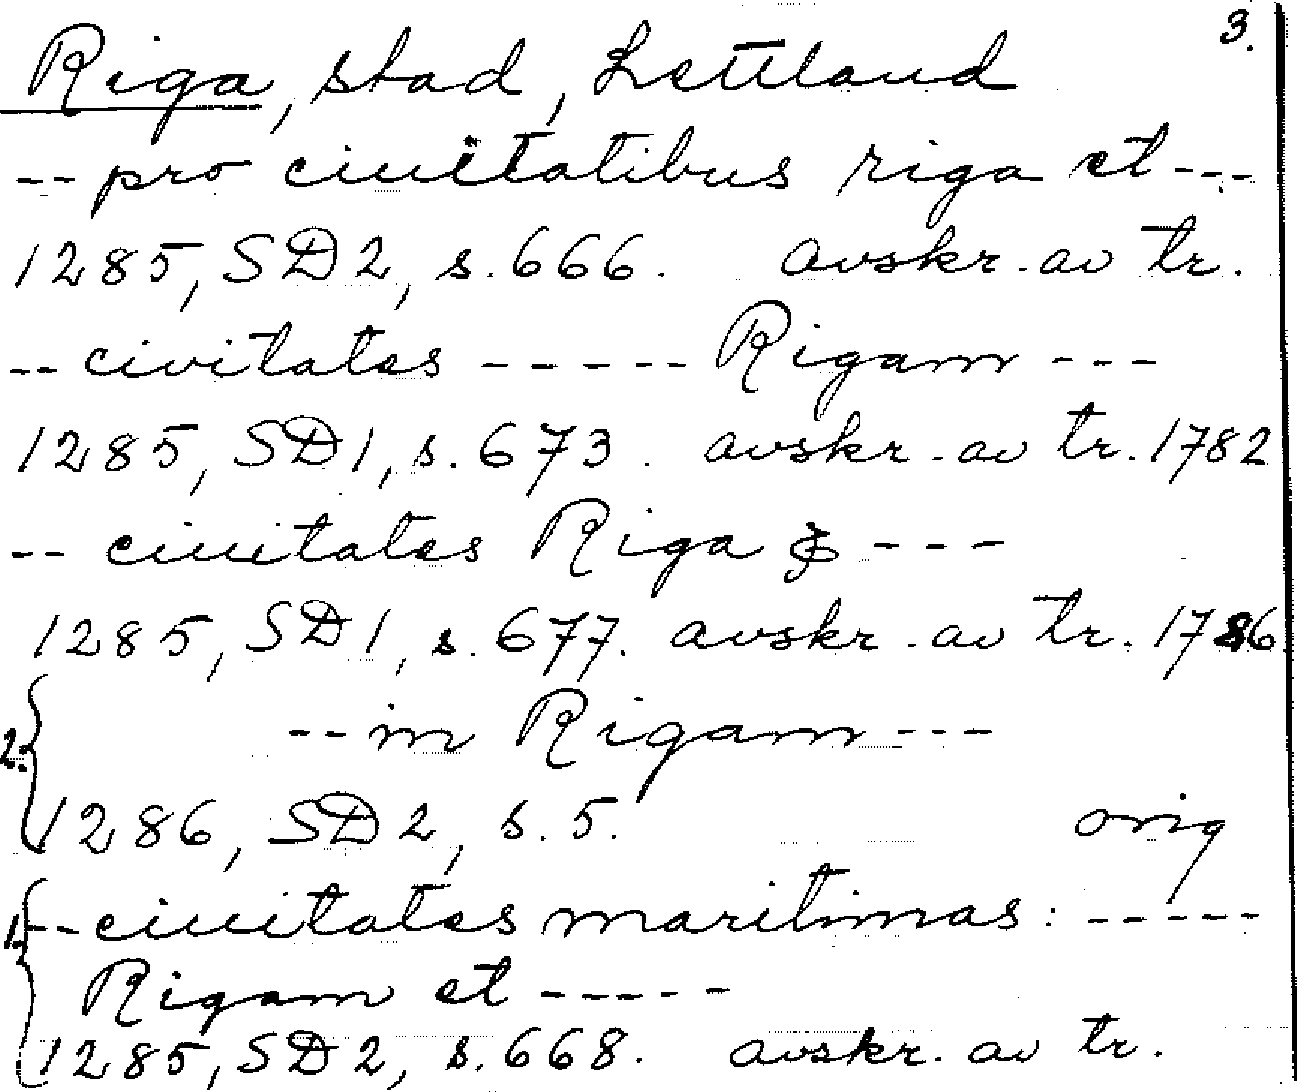 3.
Riga, stad, Lettland
-- pro ciuitatibus riga et ---
1285, SD2, s. 666. avskr. av tr.
-- civitates ----- Rigam ---
1285, SD1, s. 673. avskr. av tr. 1782
-- ciuitates Riga & ---
1285, SD1, s. 677. avskr. av tr. 1786
2. -- in Rigam ---
1286, SD2, s. 5. orig
1. -- ciuitates maritimas: -----
Rigam et -----
1285, SD2, s. 668. avskr. av tr.